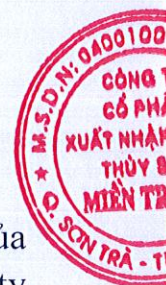 M.S.D.N: 0400100
CÔNG T
CỔ PHẦ
XUẤT NHẬP
THỦY S
MIỀN TR
Q. SƠN TRÀ - T
ủa
ty